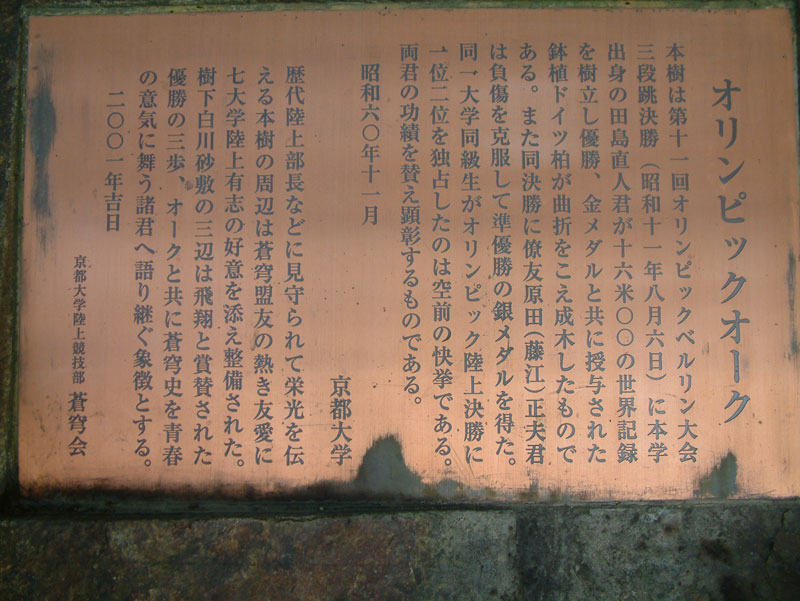 オリンピックオーク
本樹は第十一回オリンピックベルリン大会
三段跳決勝（昭和十一年八月六日）に本学
出身の田島直人君が十六米〇〇の世界記録
を樹立し優勝、金メダルと共に授与された
鉢植ドイツ柏が曲折をこえ成木したもので
ある。また同決勝に僚友原田（藤江）正夫君
は負傷を克服して準優勝の銀メダルを得た。
同一大学同級生がオリンピック陸上決勝に
一位二位を独占したのは空前の快挙である。
両君の功績を替え顕彰するものである。
昭和六〇年十一月
京都大学
歴代陸上部長などに見守られて栄光を伝
える本樹の周辺は蒼穹盟友の熱き友愛に
七大学陸上有志の好意を添え整備された。
樹下白川砂敷の三辺は飛翔と賞賛された
優勝の三歩、オークと共に蒼穹史を青春
の意気に舞う諸君へ語り継ぐ象徴とする。
二〇〇一年吉日
京都大学陸上競技部 蒼穹会